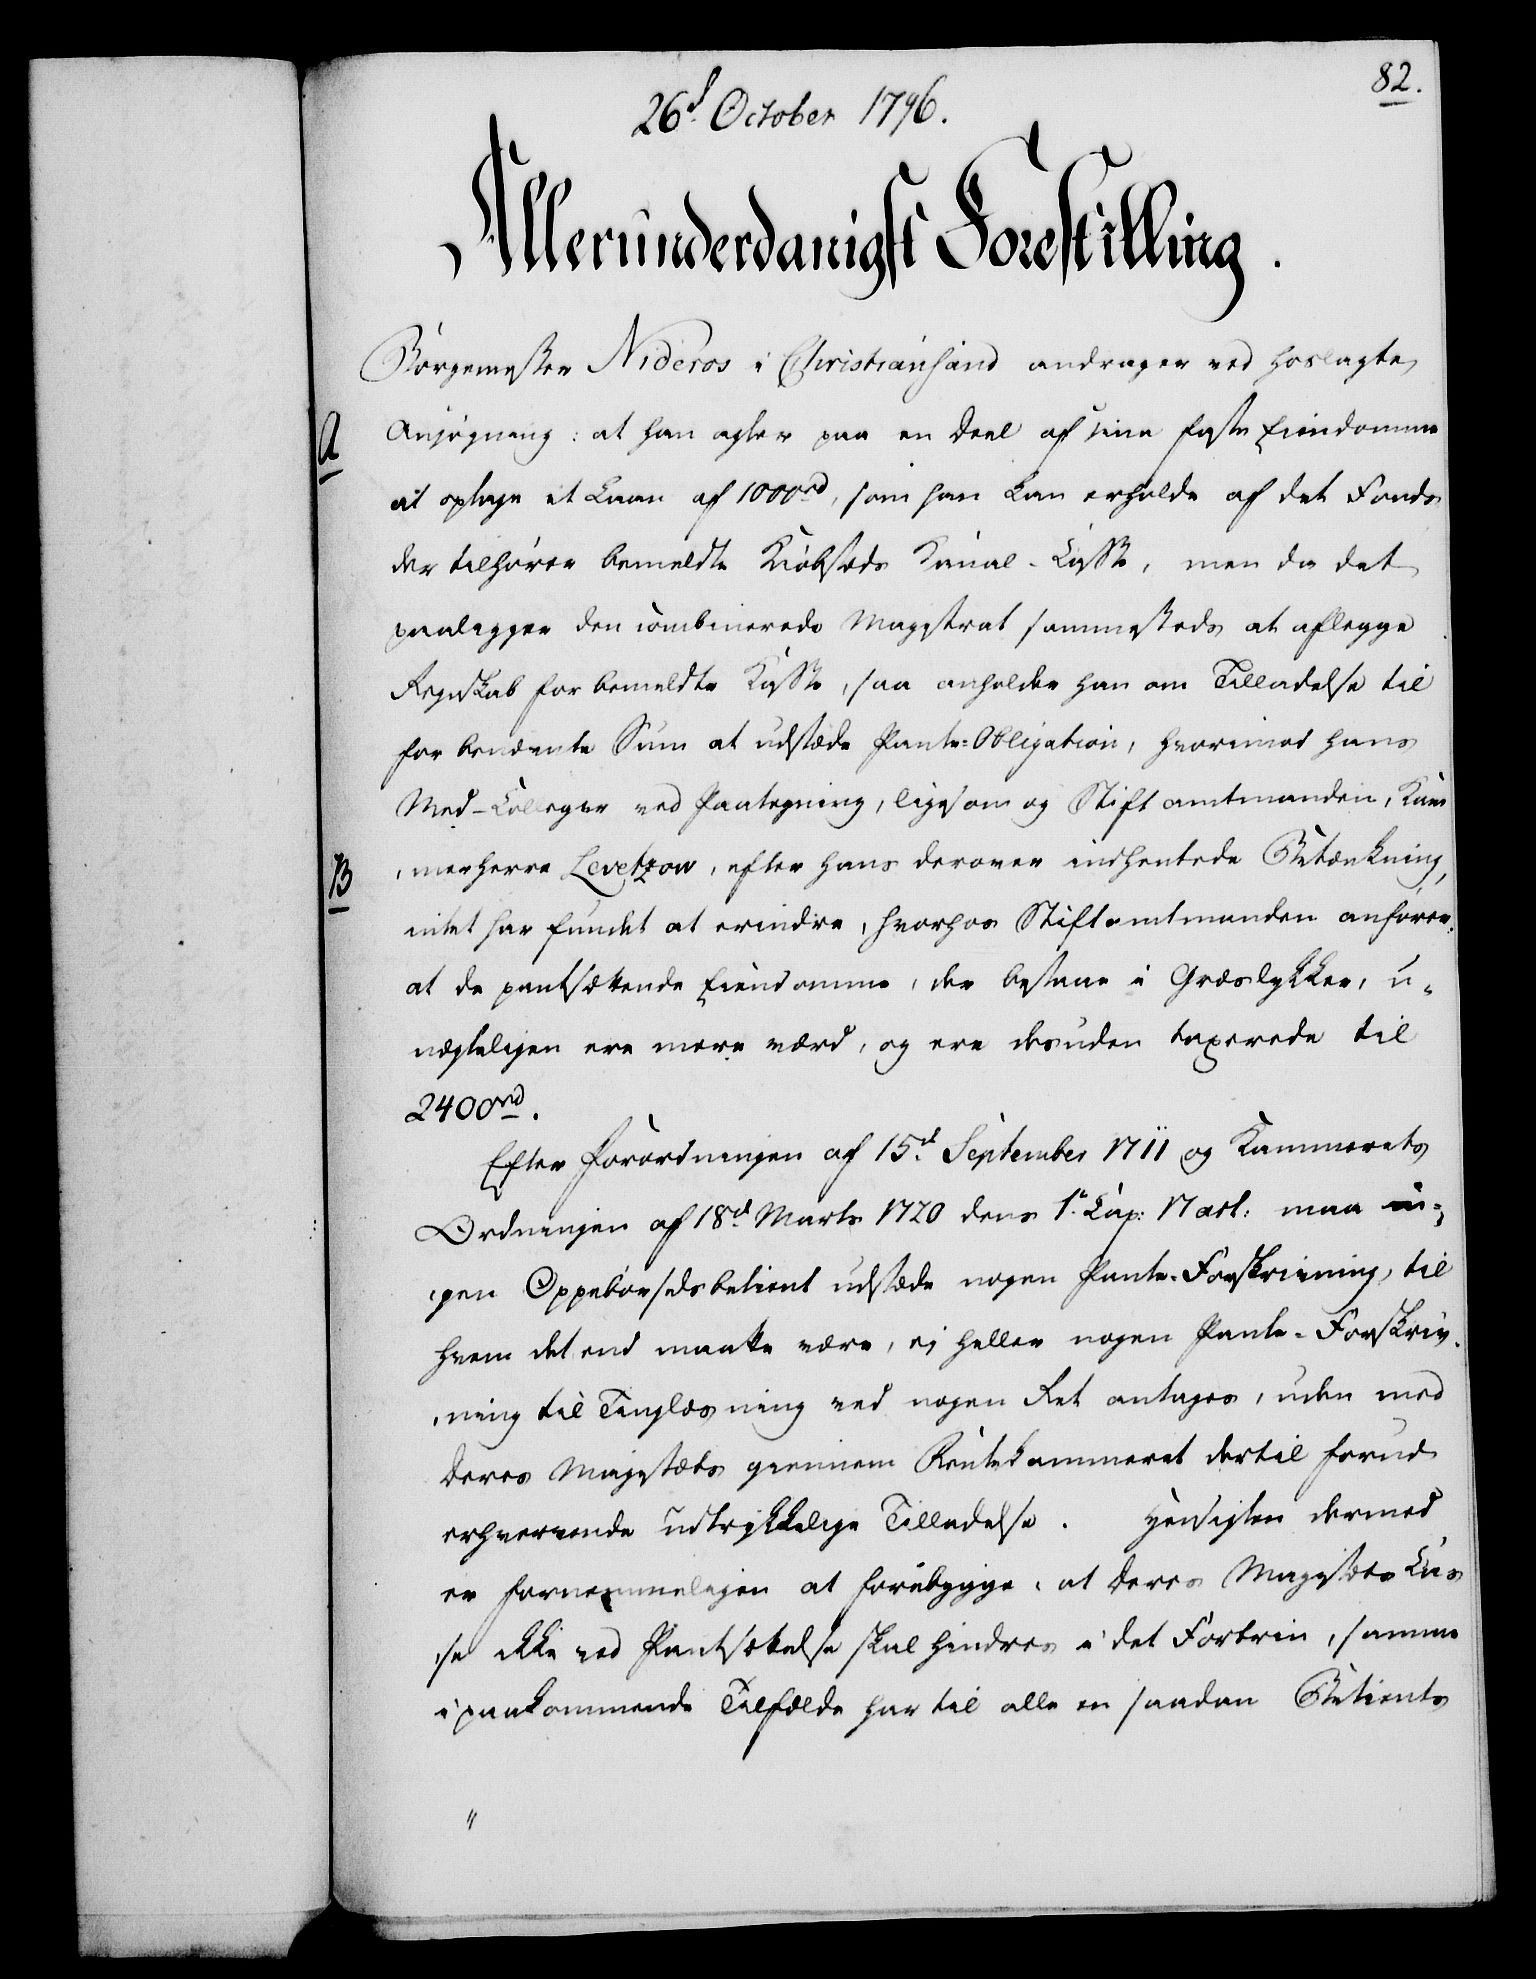 82.
26d October 1796.
Allerunderdanigst Forestilling.
Borgemester Nideros i Christiansand andrager ved hoslagte
A
Ansøgning: at han agter paa en Deel af sine faste Eiendomme
at optage et Laan af 1000rd, som han kan erholde af det Fond
der tilhører bemeldte Kiøbsteds Kanal-Casse, men da det
paaligger den combinerede Magistrat sammesteds at aflegge
Regnskab for bemeldte Kasse, saa anholder han om Tilladelse til
for benævnte Sum at udstæde Pante-Obligation, hvorimod hans
Med-Colleger ved Paategning, ligesom og Stiftamtmanden, Kam
B
merherre Levetzow, efter hans derover indhentede Betænkning,
intet har fundet at erindre, hvorhos Stiftamtmanden anfører:
at de pantsættende Eiendomme, der bestaae i Græslykker, u-
nægteligen ere mere værd, og ere desuden taxerede til
2400rd.
Efter Forordningen af 15d September 1711 og Kammerets
Ordningen af 18d Marts 1720 dens 1te Cap: 17 Art: maa in-
gen Oppebørselsbetient udstæde nogen Pante-Forskrivning, til
hvem det end maatte være, ej heller nogen Pante-Forskriv-
ning til Tinglæsning ved nogen Ret antages, uden med
Deres Majestæts giennem Rentekammeret dertil forud
erhvervende udtrykkelige Tilladelse. Hensigten dermed
er fornemmeligen at forebygge, at Deres Majestæts Cas
se ikke ved Pantsættelse skal hindres i det Fortrin, samme
i paakommende Tilfælde har til alle en saadan Betients